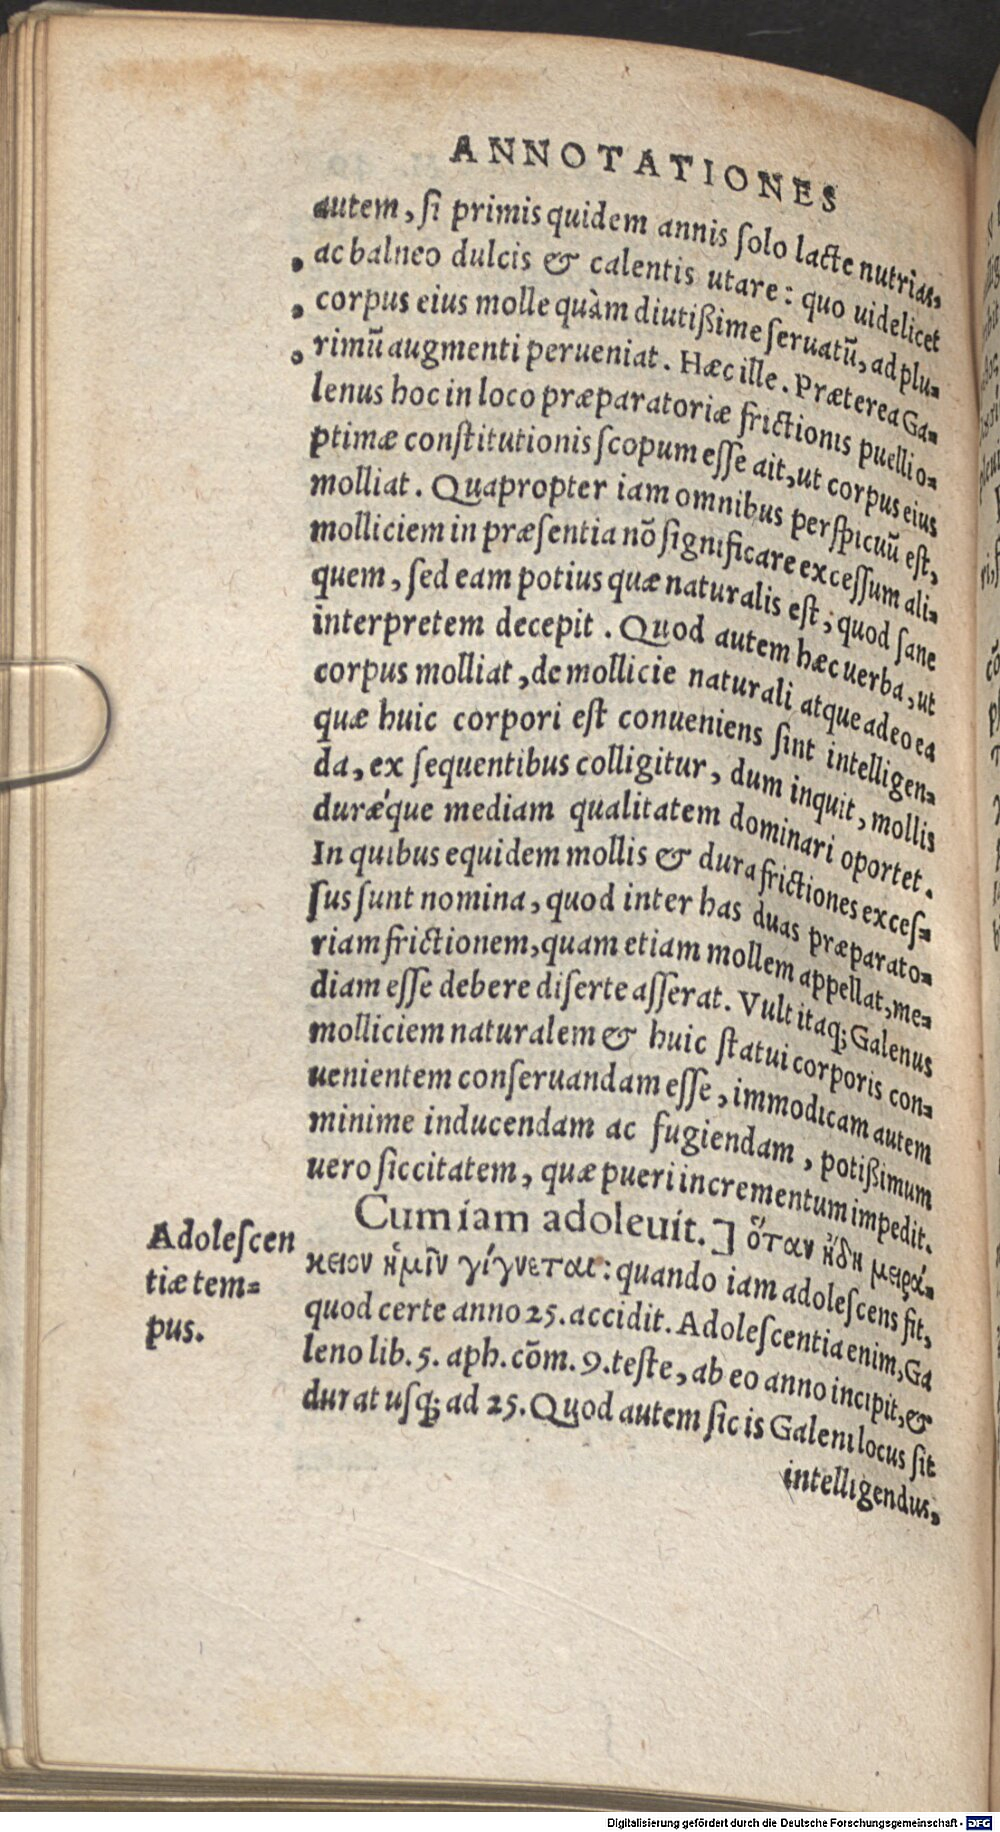 ANNOTATIONES
autem, ſi primis quidem annis ſolo lacte nutrias,
ac balneo dulcis & calentis utare: quo uidelicet
corpus eius molle quàm diutißime ſeruatũ, ad plu-
rimũ augmenti perueniat. Hæc ille. Præterea Ga-
lenus hoc in loco præparatoriæ frictionis puelli o-
ptimæ conſtitutionis ſcopum eſſe ait, ut corpus eius
molliat. Quapropter iam omnibus perſpicuũ eſt,
molliciem in præſentia nõ ſignificare exceſſum ali-
quem, ſed eam potius quæ naturalis eſt; quod ſane
interpretem decepit. Quod autem hæc uerba, ut
corpus molliat, de mollicie naturali atque adeo ea
quæ huic corpori eſt conueniens ſint intelligen-
da, ex ſequentibus colligitur, dum inquit, mollis
duræ'que mediam qualitatem dominari oportet.
In quibus equidem mollis & dura frictiones exceſ-
ſus ſunt nomina, quod inter has duas præparato-
riam frictionem, quam etiam mollem appellat, me-
diam eſſe debere diſerte aſſerat. Vult itaq; Galenus
molliciem naturalem & huic ſtatui corporis con-
uenientem conſeruandam eſſe, immodicam autem
minime inducendam ac fugiendam, potißimum
uero ſiccitatem, quæ pueri incrementum impedit.
Cum iam adoleuit.] ὅταν ἤδη μειρά-
κειον ἡμῖν γίγνεται: quando iam adoleſcens fit,
quod certe anno 25. accidit. Adoleſcentia enim, Ga
leno lib. 5. aph. cõm. 9. teſte, ab eo anno incipit, &
durat uſq; ad 25. Quod autem ſic is Galeni locus ſit
intelligendus,
Adoleſcen
tiæ tem-
pus.
Digitalisierung gefördert durch die Deutsche Forschungsgemeinschaft - DFG